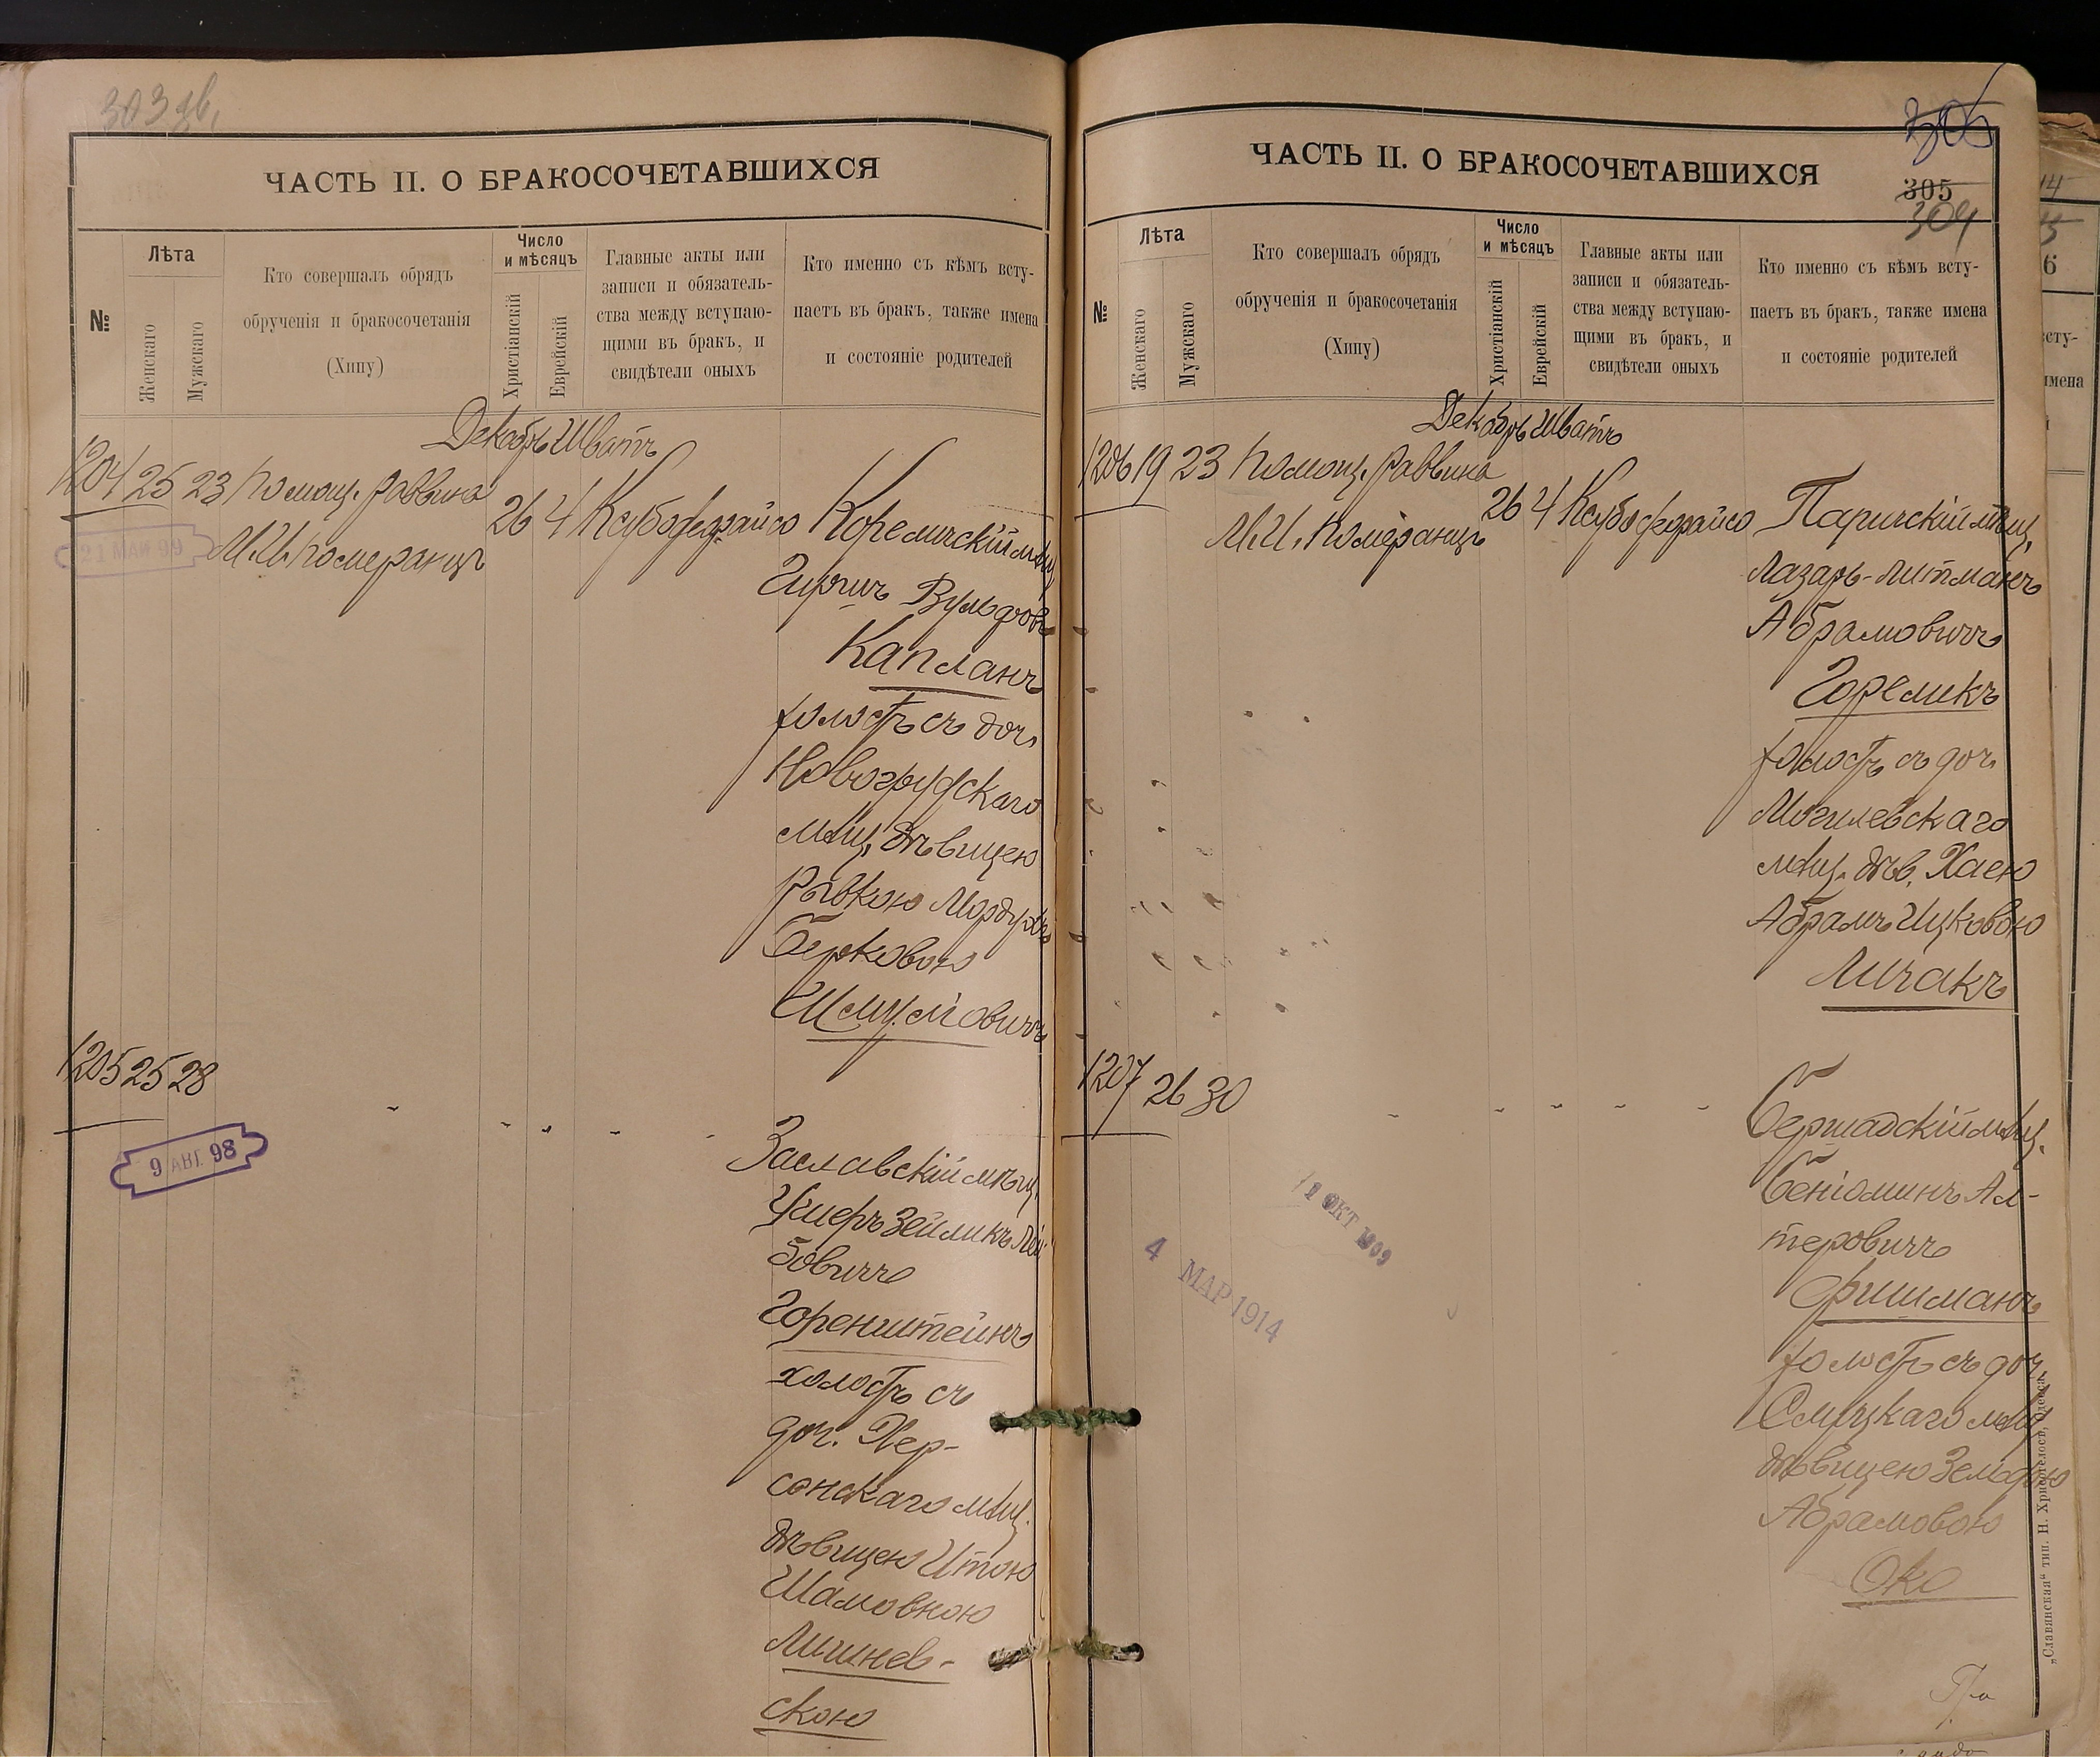 303 дв.
ЧАСТЬ II. О БРАКОСОЧЕТАВШИХСЯ
№
Лѣта
Женскаго
Мужскаго
Кто совершалъ обрядъ
обрученія и бракосочетанія
(Хипу)
Число
и мѣсяцъ
Христіанскій
Еврейскій
Главные акты или
записи и обязатель-
ства между вступаю-
щими въ бракъ, и
свидѣтели оныхъ
Кто именно съ кѣмъ всту-
паетъ въ бракъ, также имена
и состояніе родителей
Декабрь Шватъ
1204 25 23 Помощ. раввина
М. И. Померанцъ
26 4 Ксубо федрайсо
21 МАЙ 99
Кореличскій мѣщ.
Гиршъ Вульфов.
Капланъ
холостъ съ доч.
Новогрудскаго
мѣщ. дѣвицею
Рывкою Мордухъ
Берковою
Шмуйловичъ
1205 25 28
9 АВГ. 98
Заславскій мѣщ.
Ушеръ Зейликъ Лей-
бовичъ
Горенштейнъ
холостъ съ
доч. Хер-
сонскаго мѣщ.
дѣвицею Итою
Шамовною
Лишнев-
скою
305
ЧАСТЬ II. О БРАКОСОЧЕТАВШИХСЯ
305
304
№
Лѣта
Женскаго
Мужскаго
Кто совершалъ обрядъ
обрученія и бракосочетанія
(Хипу)
Число
и мѣсяцъ
Христіанскій
Еврейскій
Главные акты или
записи и обязатель-
ства между вступаю-
щими въ бракъ, и
свидѣтели оныхъ
Кто именно съ кѣмъ всту-
паетъ въ бракъ, также имена
и состояніе родителей
Декабрь Шватъ
1206 19 23 Помощ. раввина
М. И. Померанцъ
26 4 Ксубо федрайсо
Паричскій мѣщ.
Лазарь-Литманъ
Абрамовичъ
Гореликъ
холостъ съ доч.
Могилевскаго
мѣщ. дѣв. Хаею
Абрамъ Ицковою
Личакъ
1207 26 30
ОКТ 1909
4 МАР 1914
Бершадскій мѣщ.
Беніоминъ Ал-
теровичъ
Фишманъ
холостъ съ доч.
Слуцкаго мѣщ.
дѣвицею Зельдою
Абрамовою
Око
„Славянская“ тип. Н. Хрисогелосъ, Одесса.